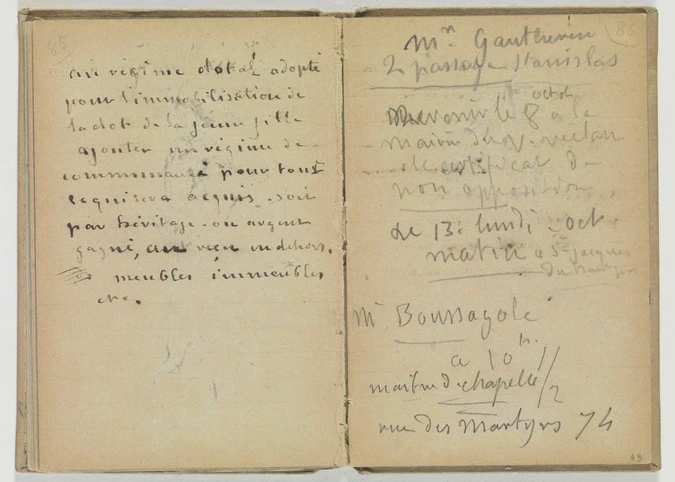 85
au régime dotal adopté
pour l'immobilisation de
la dot de la jeune fille
ajouter un régime de
communauté pour tout
ce qui sera acquis. soit
par héritage. ou argent
gagné, au rien en dehors.
meubles immeubles
etc.
86
Mr Gautherin
2 passage Stanislas
octob
Revenir le 8 à la
mairie du
le certificat de
non opposition
Le 13. lundi oct.
matin à St Jacques
du haut pas
Mr Boussagole
a 10 h. 1/2
maitre d. chapelle
rue des Martyrs 74
43